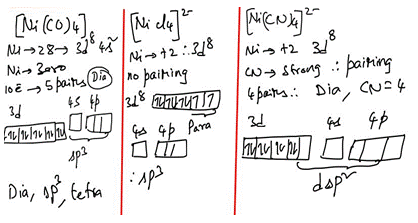 [Ni(CO)4]
Ni→28→3d⁸4s²
Ni→Zero
10ē→5pairs Dia
3d 4s 4p
sp³
Dia, sp³, tetra
[Nicl4]²⁻
Ni→+2:3d⁸
no pairing
3d⁸
Para
4s 4p
∴sp³
[Ni(CN)4]²⁻
Ni→+2 3d⁸
CN→strong ∴pairing
4pairs∴ Dia, CN=4
3d 4s 4p
dsp²